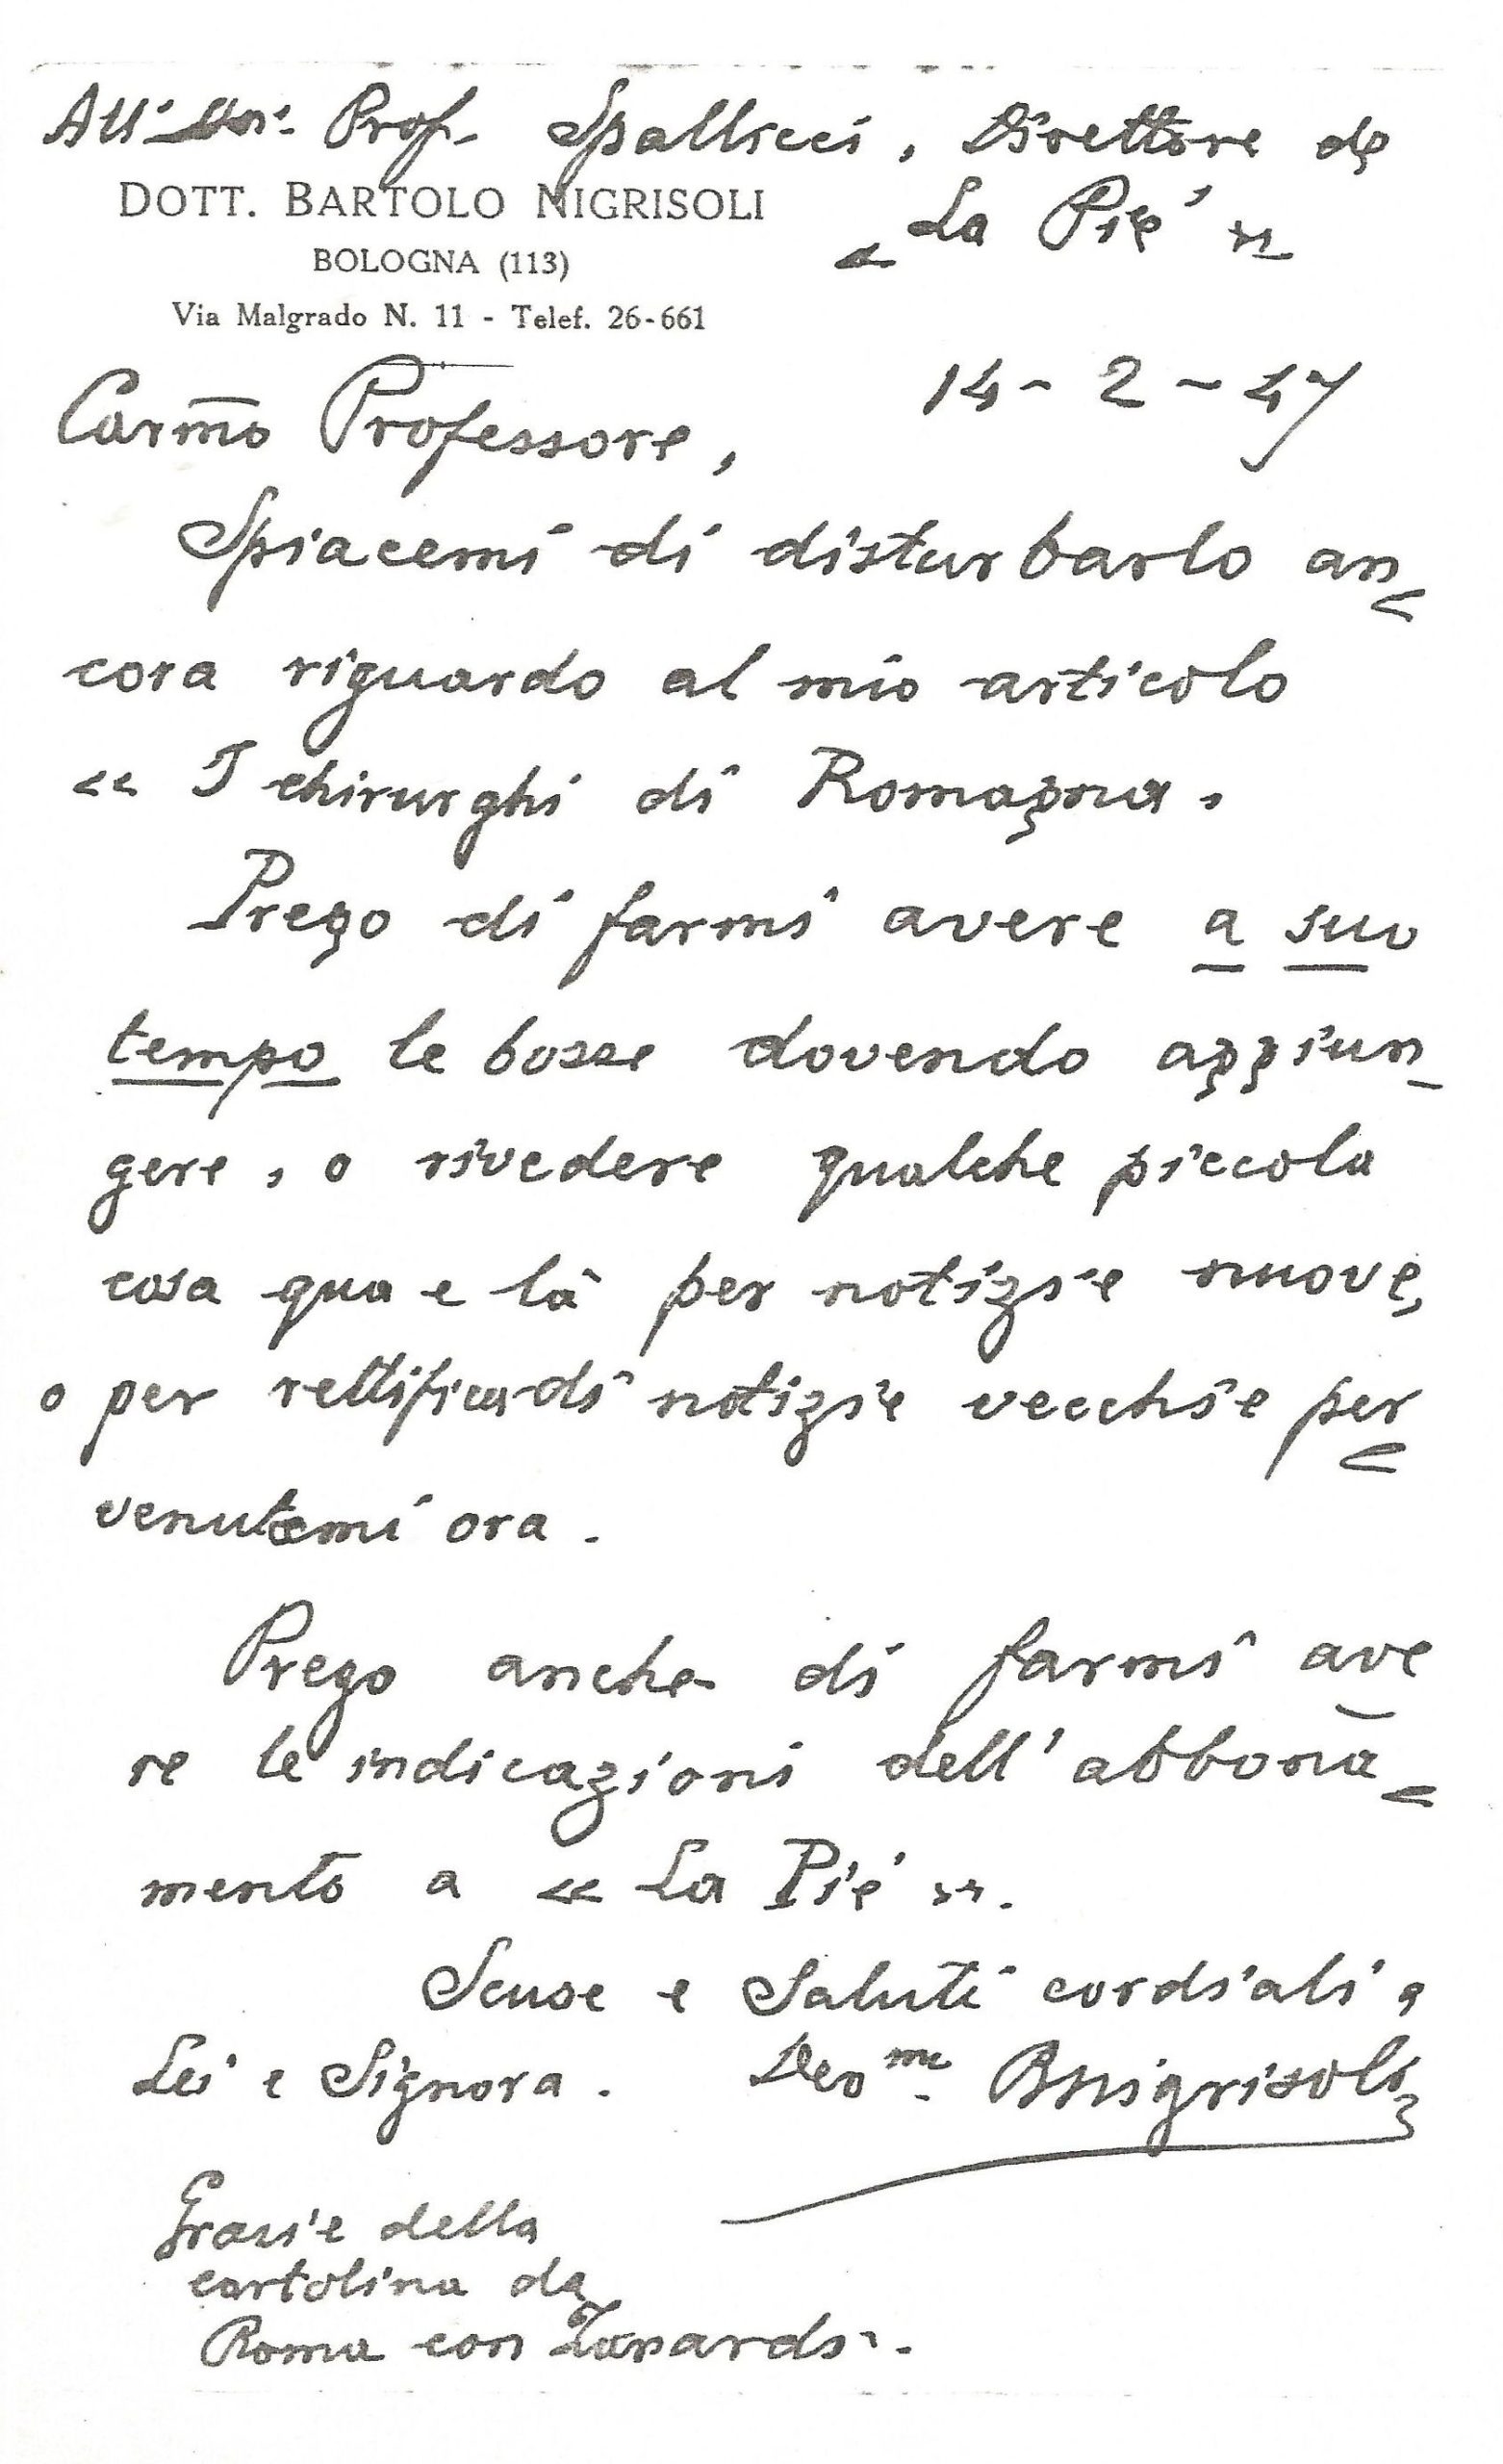 All'On. Prof. Spallicci, Direttore de
DOTT. BARTOLO NIGRISOLI
« La Piè »
BOLOGNA (113)
Via Malgrado N. 11 - Telef. 26-661
14 - 2 - 47
Carmo Professore,
Spiacemi di disturbarlo an=
cora riguardo al mio articolo
« I chirurghi di Romagna.
Prego di farmi avere a suo
tempo le bozze dovendo aggiun-
gere, o rivedere qualche piccola
cosa qua e là per notizie nuove,
o per rettifica di notizie vecchie per=
venutemi ora.
Prego anche di farmi ave
re le indicazioni dell'abbona=
mento a « La Piè ».
Scuse e Saluti cordiali a
Lei e Signora. Devme BNigrisoli
Grazie della
cartolina da
Roma con Zanardi.